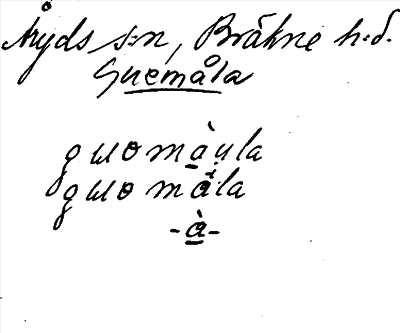 Åryds s:n, Bräkne h:d.
Guemåla
gɯɵmàu̩la
gɯɵmåla
-à-